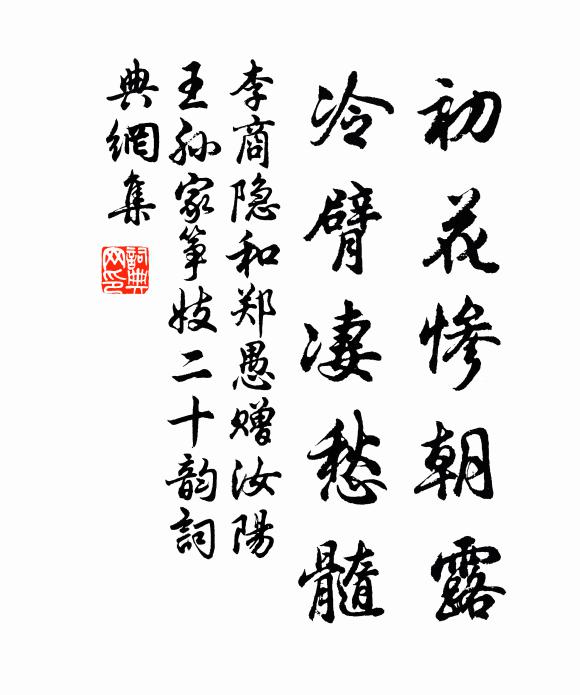 初花惨朝露
冷臂凄愁髓
李商隐和郑愚赠汝陽
王孙家筝妓二十韵詞
典網集
詞典
网印